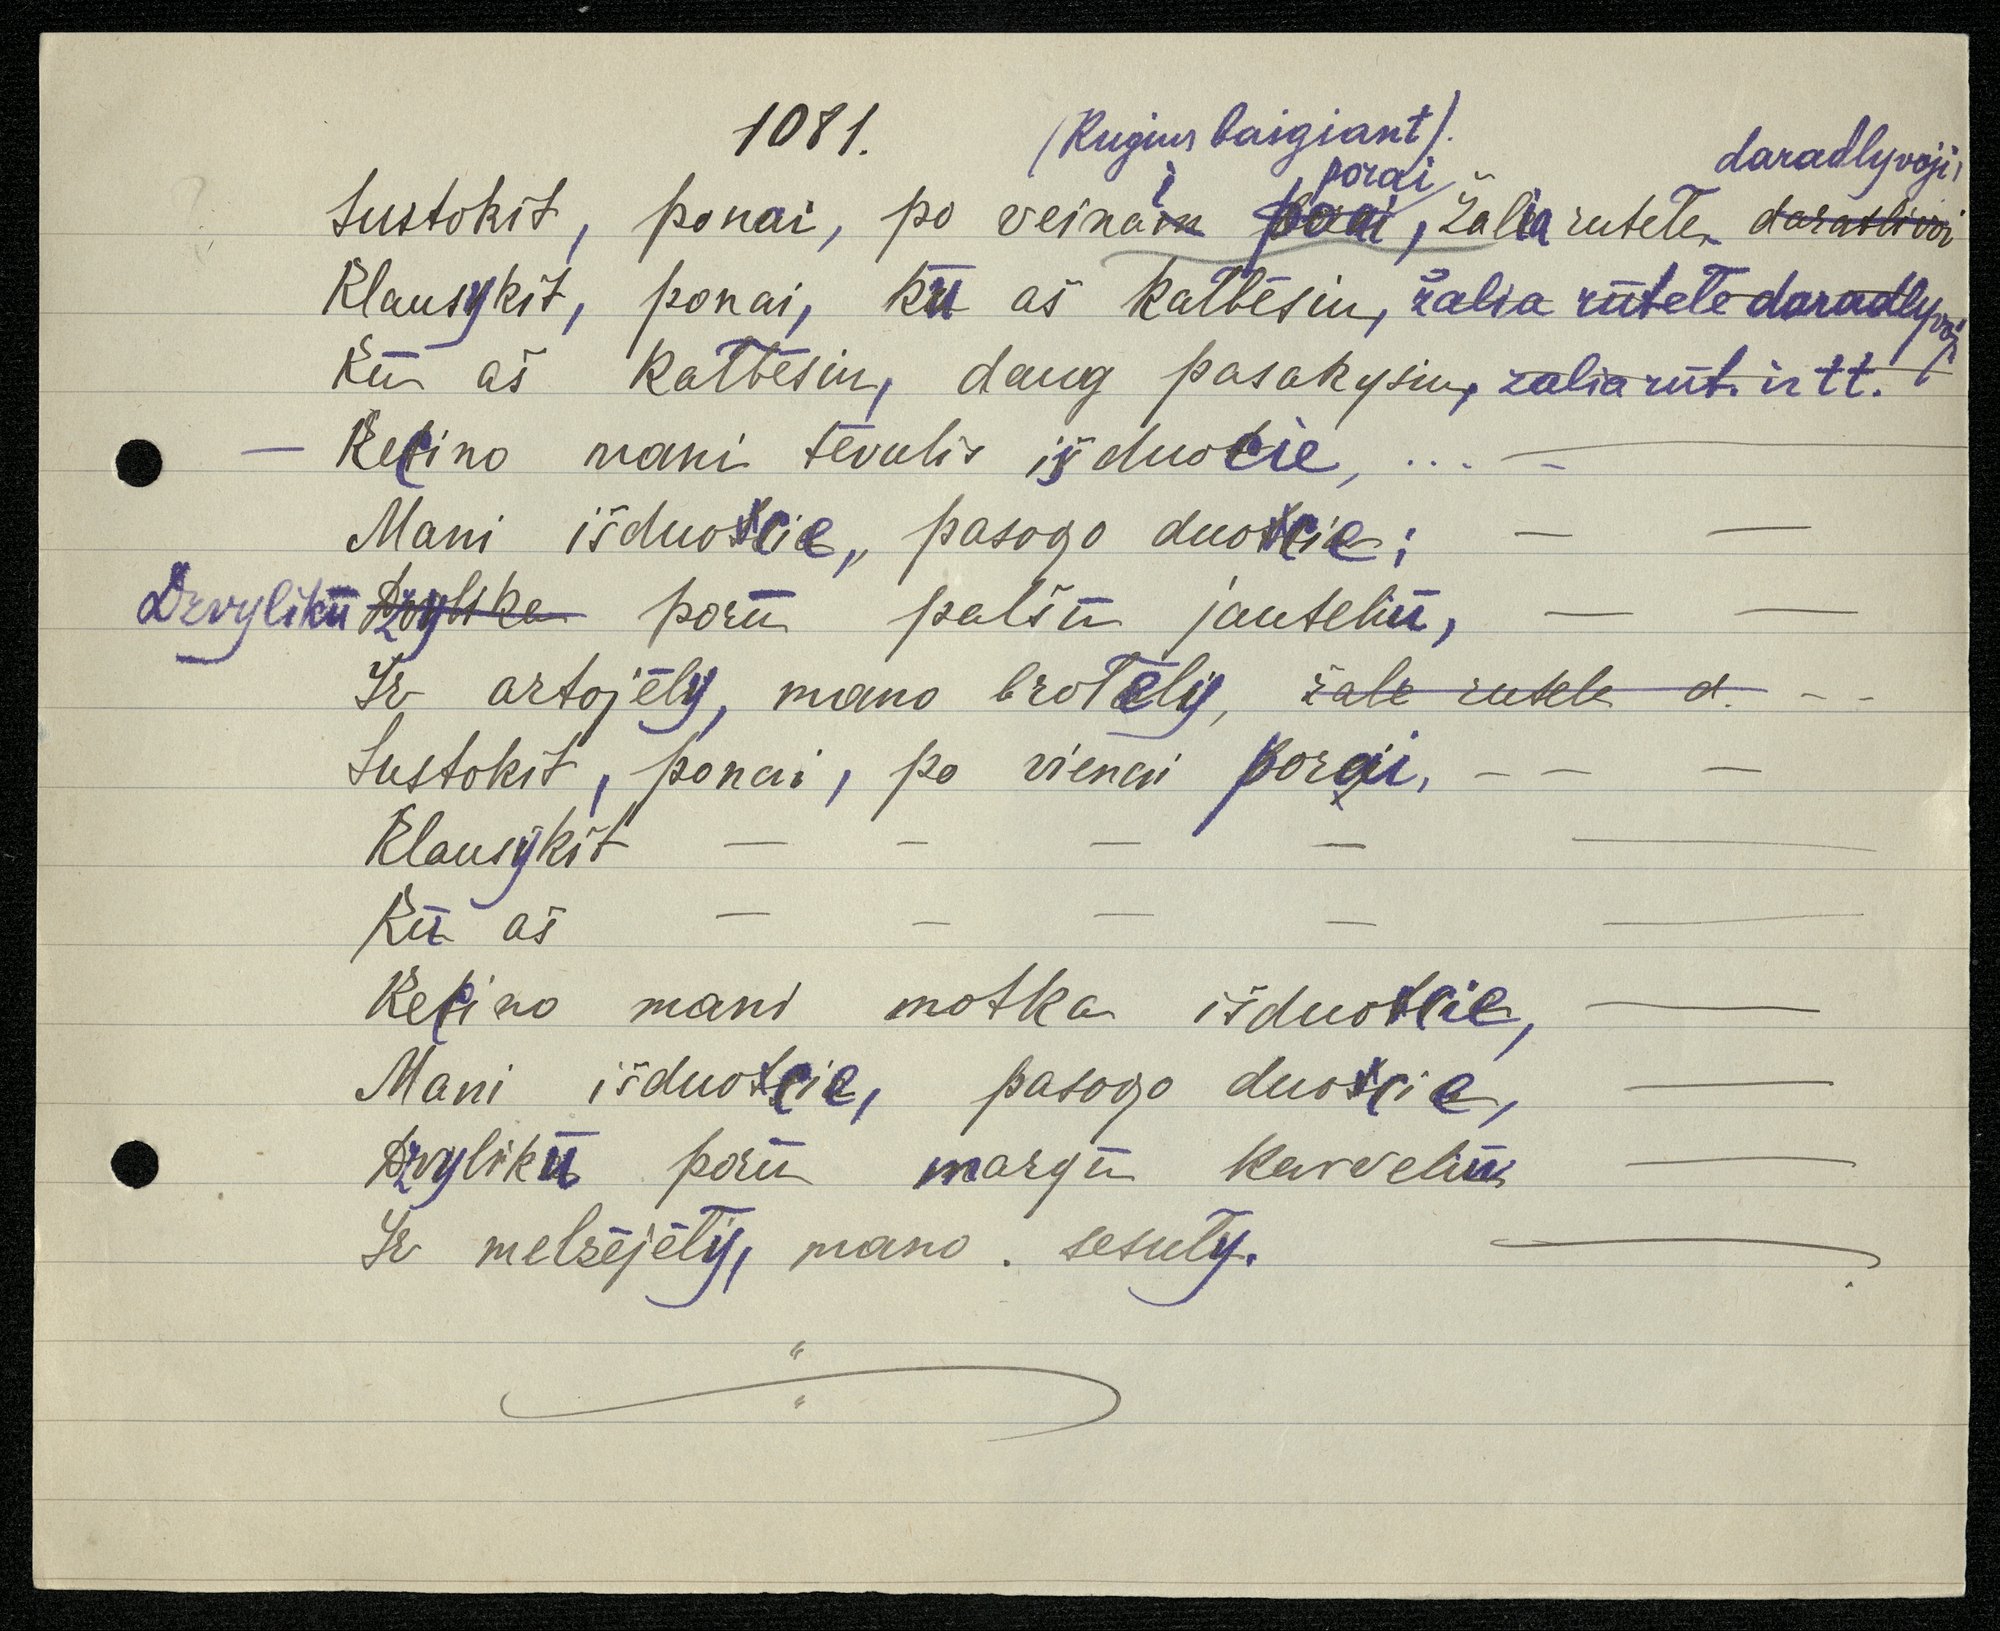 1081. (Rugius baigiant).
daradlyvoji,
i porai
Sustokit, ponai, po veinain porai, žalia rutele daratlivoi
Klausykit, ponai, kū aš kalbėsiu, žalia rūtele daradlyvoji
Kū aš kalbėsiu, daug pasakysiu, zalia rūt. ir tt.
— Kecino mani tėvulis išduocie, ... —
Mani išduocie, pasogo duocie; — —
Dzvylikū porū palšū jauteliū, — —
Ir artojėlỹ, mano brotelỹ, žale rutele d. - -
Sustokit, ponai, po vienai porai, — — —
Klausykit — — — — —
Kū aš — — — — —
Kecino mani motka išduocie, —
Mani išduocie, pasogo duocie, —
Dzvylikū porū margū karvelių —
Ir melžėjėlỹ, mano sesutỹ. —